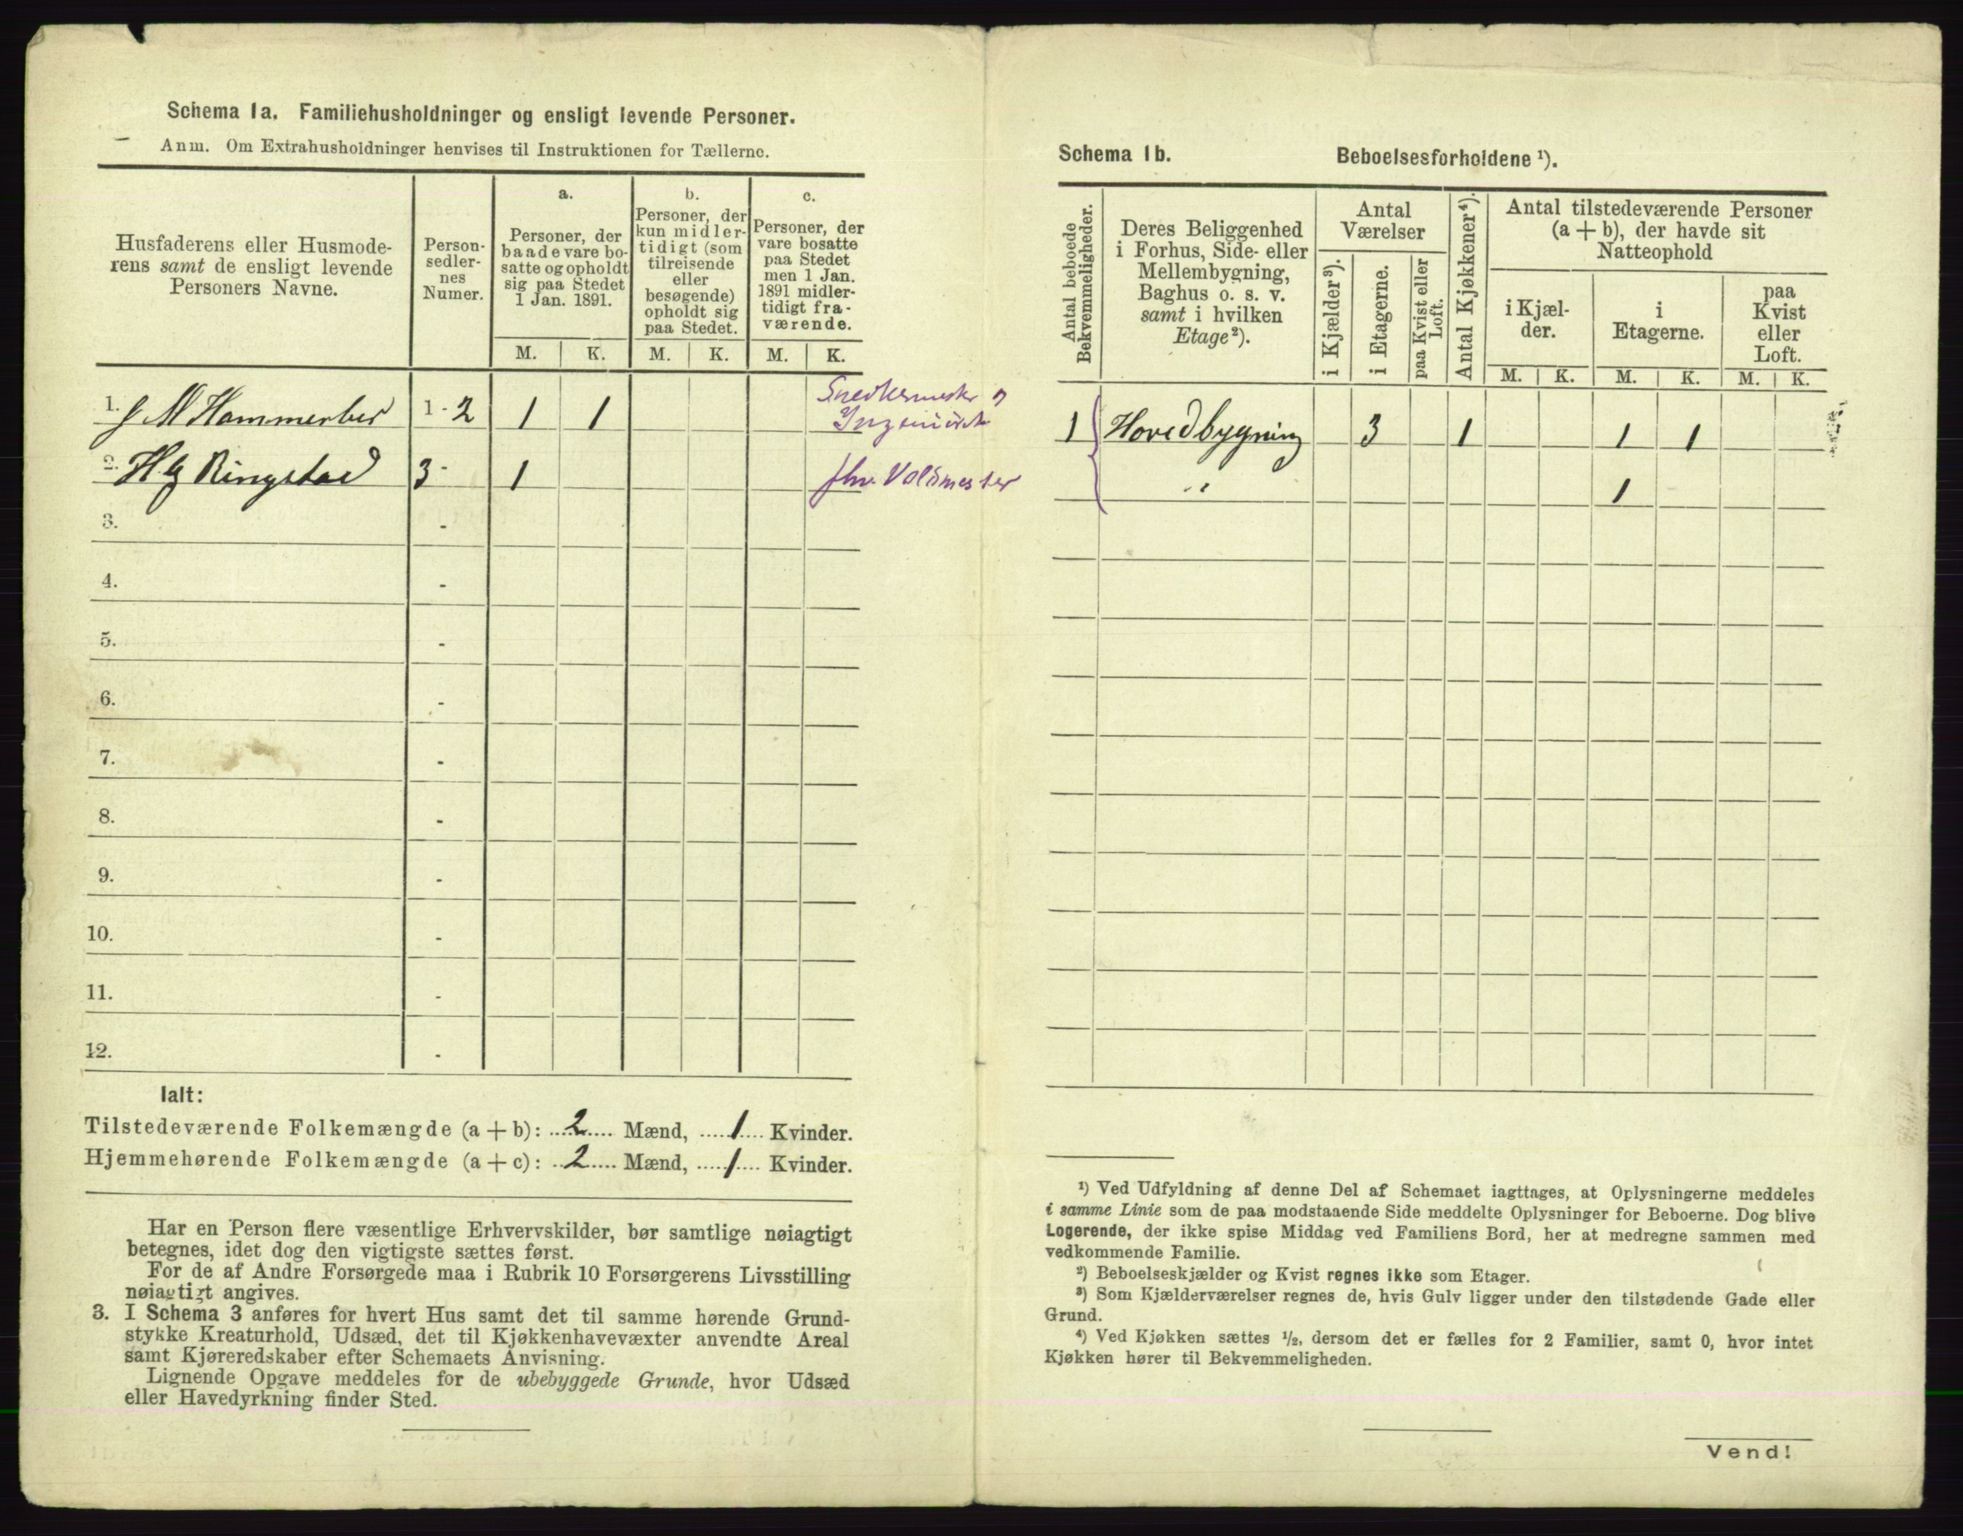 Schema 1a. Familiehusholdninger og ensligt levende Personer.
Anm. Om Extrahusholdninger henvises til Instruktionen for Tællerne.
Husfaderens eller Husmode-
rens samt de ensligt levende
Personers Navne.
Person-
sedler-
nes
Numer.
a.
Personer, der
baade vare bo-
satte og opholdt
sig paa Stedet
1 Jan. 1891.
b.
Personer, der
kun midler-
tidigt (som
tilreisende
eller
besøgende)
opholdt sig
paa Stedet.
c.
Personer, der
vare bosatte
paa Stedet
men 1 Jan.
1891 midler-
tidigt fra-
værende.
M. K. M. K. M. K.
1. J M Hammerber 1 - 2 1 1
Ingeniør
2. H G Ringstad 3 - 1
fhv. Voldmester
3. -
4. -
5. -
6. -
7. -
8. -
9. -
10. -
11. -
12. -
Ialt:
Tilstedeværende Folkemængde (a + b): 2 Mænd, 1 Kvinder.
Hjemmehørende Folkemængde (a + c): 2 Mænd, 1 Kvinder.
Har en Person flere væsentlige Erhvervskilder, bør samtlige nøiagtigt
betegnes, idet dog den vigtigste sættes først.
For de af Andre Forsørgede maa i Rubrik 10 Forsørgerens Livsstilling
nøiagtigt angives.
3. I Schema 3 anføres for hvert Hus samt det til samme hørende Grund-
stykke Kreaturhold, Udsæd, det til Kjøkkenhavevæxter anvendte Areal
samt Kjøreredskaber efter Schemaets Anvisning.
Lignende Opgave meddeles for de ubebyggede Grunde, hvor Udsæd
eller Havedyrkning finder Sted.
Schema 1b. Beboelsesforholdene ¹).
Antal beboede
Bekvemmeligheder.
Deres Beliggenhed
i Forhus, Side- eller
Mellembygning,
Baghus o. s. v.
samt i hvilken
Etage²).
Antal
Værelser
i Kjælder³).
i Etagerne.
paa Kvist eller
Loft.
Antal Kjøkkener⁴).
Antal tilstedeværende Personer
(a + b), der havde sit
Natteophold
i Kjæl-
der.
i
Etagerne.
paa
Kvist
eller
Loft.
M. K. M. K. M. K.
1 Hovedbygning 3 1 1 1
" 1
¹) Ved Udfyldning af denne Del af Schemaet iagttages, at Oplysningerne meddeles
i samme Linie som de paa modstaaende Side meddelte Oplysninger for Beboerne. Dog blive
Logerende, der ikke spise Middag ved Familiens Bord, her at medregne sammen med
vedkommende Familie.
²) Beboelseskjælder og Kvist regnes ikke som Etager.
³) Som Kjælderværelser regnes de, hvis Gulv ligger under den tilstødende Gade eller
Grund.
⁴) Ved Kjøkken sættes ½, dersom det er fælles for 2 Familier, samt 0, hvor intet
Kjøkken hører til Bekvemmeligheden.
Vend!